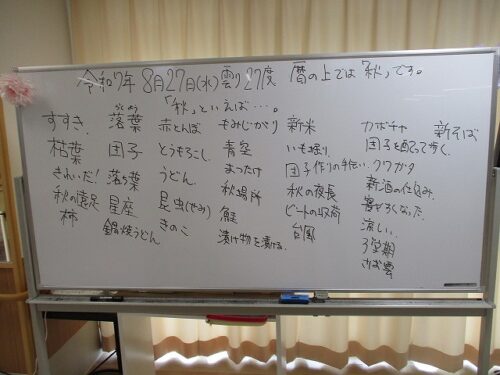 令和7年 8月27日(水) 曇り 27度 暦の上では「秋」です。
「秋」といえば…。
すすき、
枯葉
きれいだ!
秋の遠足
柿
らくよう
落葉
団子
落ち葉
星座
鍋焼うどん
赤とんぼ
とうもろこし
うどん
昆虫(せみ)
きのこ
もみじがり
青空
まつたけ
秋場所
鮭
漬け物を漬ける
新米
いも堀り
団子作りの手伝い
秋の夜長
ビートの収荷
台風
カボチャ
団子を配って歩く
クワガタ
新酒の仕込み
寒かろくなった
涼しい
さば雲
新そば